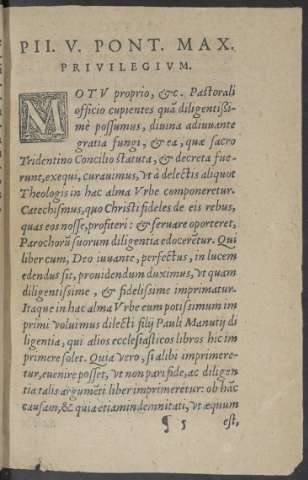 PII. V. PONT. MAX.
PRIVILEGIVM.
MOTV proprio, &c. Pastorali
officio cupientes quā diligentissi-
mè possumus, diuina adiuuante
gratia fungi, & ea, quæ sacro
Tridentino Concilio statuta, & decreta fue-
runt, exequi, curauimus, vt à delectis aliquot
Theologis in hac alma Vrbe componeretur.
Catechismus, quo Christi fideles de eis rebus,
quas eos nosse, profiteri: & seruare oporteret,
Parochorū suorum diligentia edocerētur. Qui
liber cum, Deo iuuante, perfectus, in lucem
edendus sit, prouidendum duximus, vt quam
diligentissime, & fidelissime imprimatur.
Itaque in hac alma Vrbe eum potissimum im
primi voluimus dilecti filij Pauli Manutij di
ligentia, qui alios ecclesiasticos libros hic im
primere solet. Quia vero, si alibi imprimere-
tur, euenire posset, vt non pari fide, ac diligen
tia talis argumēti liber imprimeretur: ob hāc
causam, & quia etiam indemnitati, vt æquum
¶ 5 est,